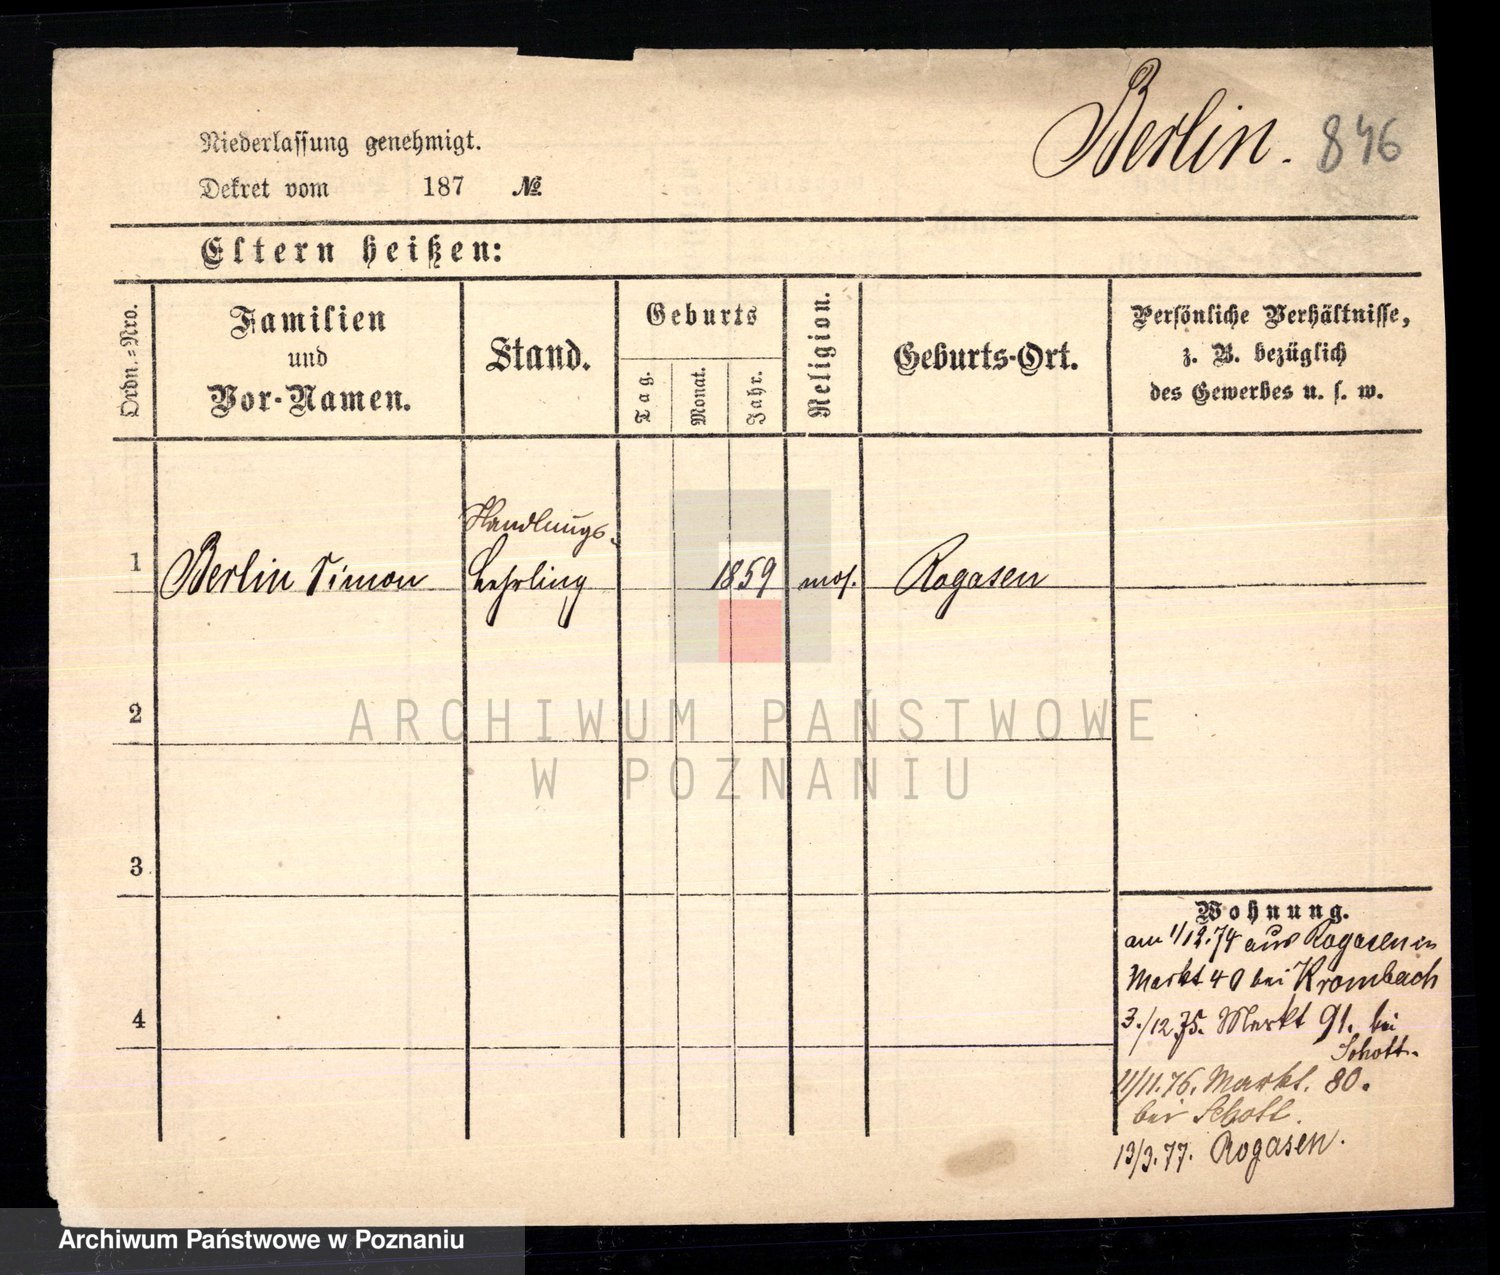 Berlin. 846
Niederlassung genehmigt.
Dekret vom 187 №
Eltern heißen:
Ordn.=Nro.
Familien
und
Vor-Namen.
Stand.
Geburts
Tag.
Monat.
Jahr.
Religion.
Geburts-Ort.
Persönliche Verhältnisse,
z. B. bezüglich
des Gewerbes u. s. w.
1 Berlin Simon
Handlungs-
Lehrling
1859 mos. Rogasen
2
3
4
Wohnung.
am 1/12.74 aus Rogasen in
Markt 40 bei Krombach
3./12 75. Markt 91. bei
Schott.
11/11.76. Markt. 80.
bei Schott.
13/3.77. Rogasen.
ARCHIWUM PAŃSTWOWE
W POZNANIU
Archiwum Państwowe w Poznaniu